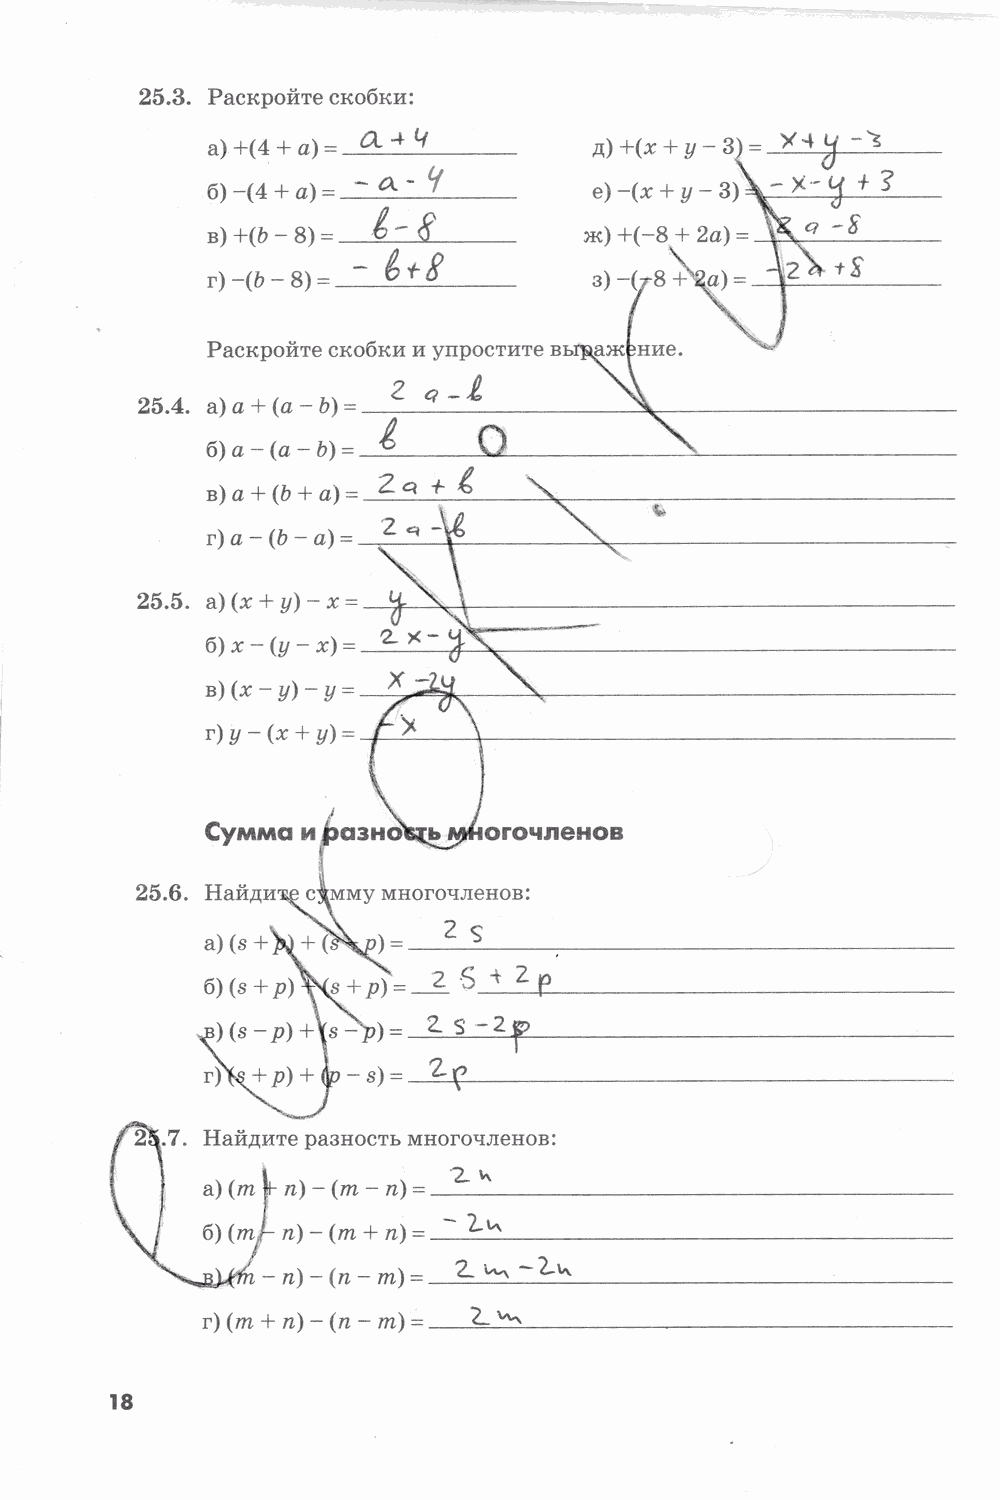 25.3. Раскройте скобки:
а) +(4 + a) = a + 4
д) +(x + y − 3) = x + y − 3
б) −(4 + a) = − a − 4
е) −(x + y − 3) = − x − y + 3
в) +(b − 8) = b − 8
ж) +(−8 + 2a) = 2a − 8
г) −(b − 8) = − b + 8
з) −(−8 + 2a) = − 2a + 8
Раскройте скобки и упростите выражение.
25.4. а) a + (a − b) = 2a − b
б) a − (a − b) = b
в) a + (b + a) = 2a + b
г) a − (b − a) = 2a − b
25.5. а) (x + y) − x = y
б) x − (y − x) = 2x − y
в) (x − y) − y = x − 2y
г) y − (x + y) = − x
Сумма и разность многочленов
25.6. Найдите сумму многочленов:
а) (s + p) + (s − p) = 2s
б) (s + p) + (s + p) = 2s + 2p
в) (s − p) + (s − p) = 2s − 2p
г) (s + p) + (p − s) = 2p
25.7. Найдите разность многочленов:
а) (m + n) − (m − n) = 2n
б) (m − n) − (m + n) = − 2n
в) (m − n) − (n − m) = 2m − 2n
г) (m + n) − (n − m) = 2m
18